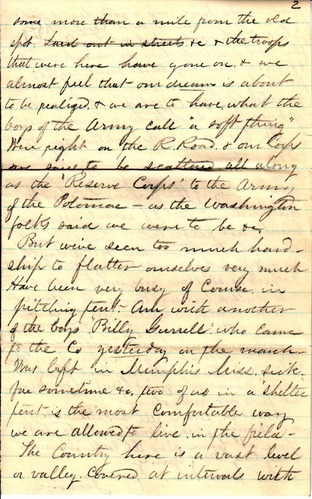 2
some more than a mile from the old
spot laid out in streets &c & the troops
that were here have gone on, & we
almost feel that our dream is about
to be realized, & we are to have, what the
boys of the Army call "a soft thing"
Were right on the R. Road. & our Corps
are to be scattered all along
as the "Reserve Corps" to the Army
of the Potomac - as the Washington
folks said we were to be &c.
But we've seen too much hard-
ship to flatter ourselves very much
Have been very busy of course, in
pitching tent. Am with another
of the boys "Billy Gurrell" who came
to the Co yesterday on the march
Was left in Memphis Miss. sick
for sometime &c, two of us in a "shelter
tent" is the most comfortable way
we are allowed to live, in the field -
The Country here is a vast level
or valley. covered at intervals with